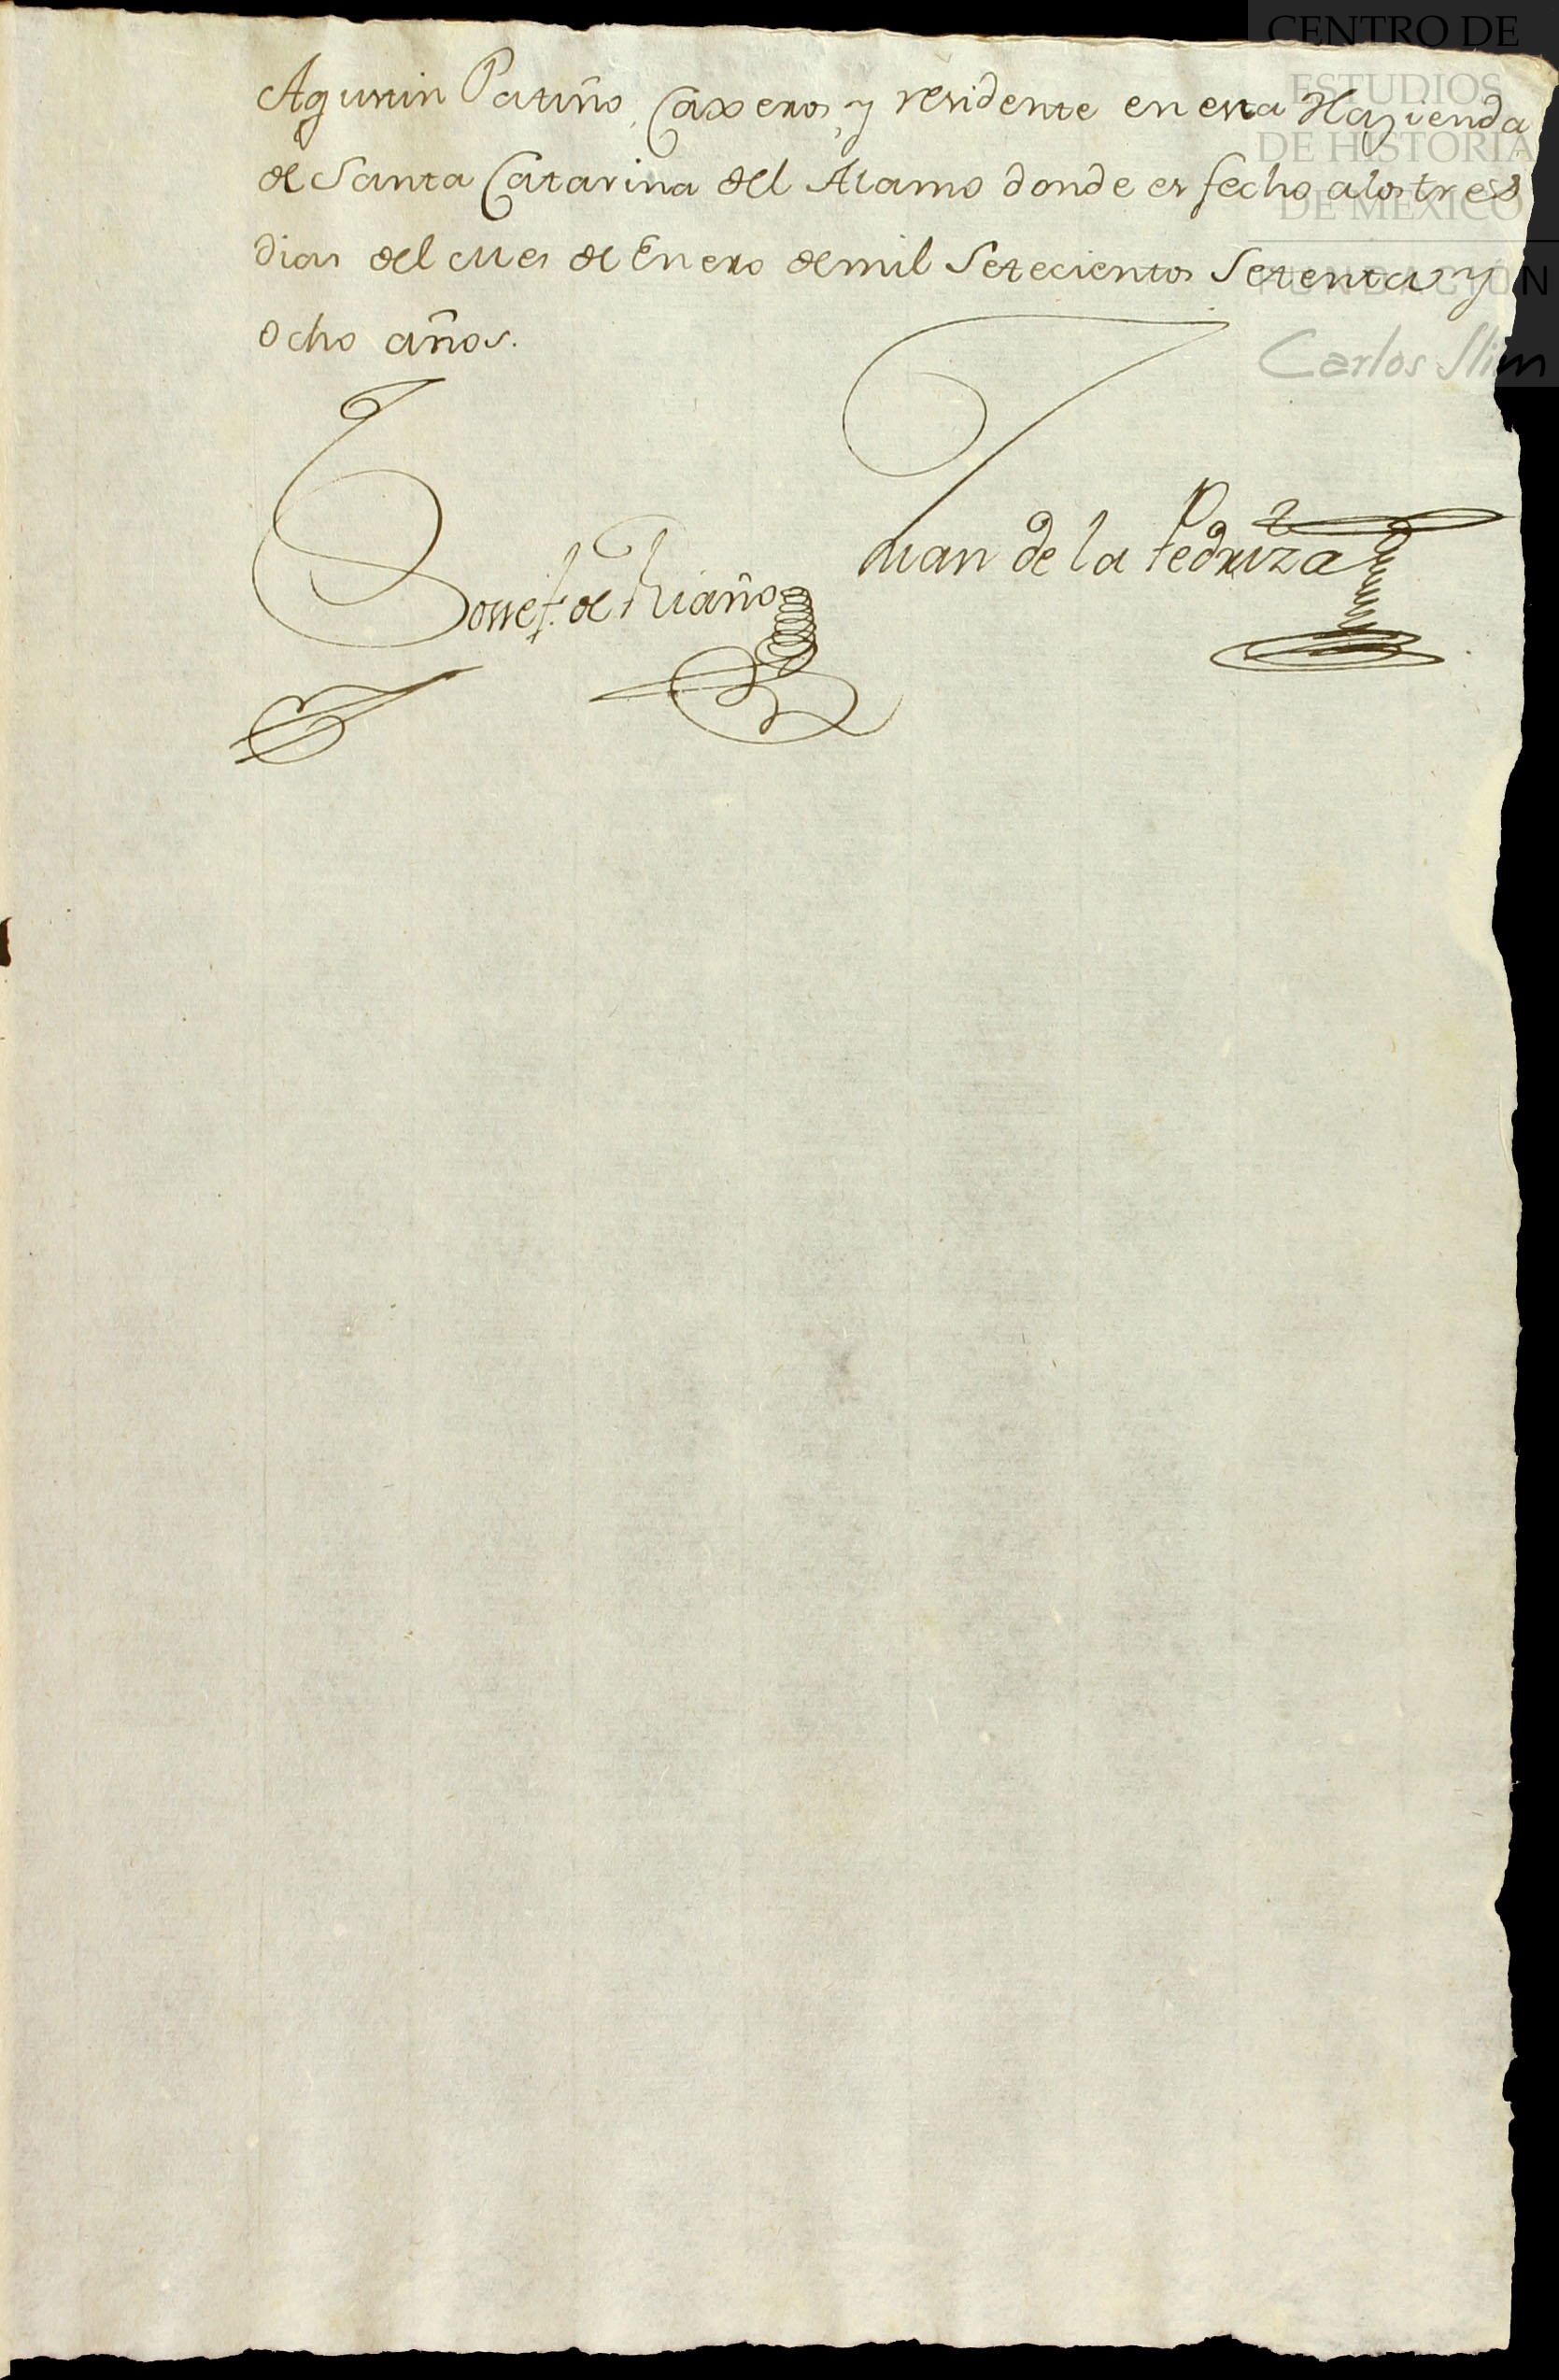 Agustin Patiño, Caxeros, y residente en esta Hazienda
de Santa Catarina del Alamo donde es fecho a los tres
dias del Mes de Enero de mil Setecientos Setenta y
ocho años.
Jossef. de Riaño
Juan de la Pedruza
CENTRO DE
ESTUDIOS
DE HISTORIA
DE MÉXICO
FUNDACIÓN
Carlos Slim